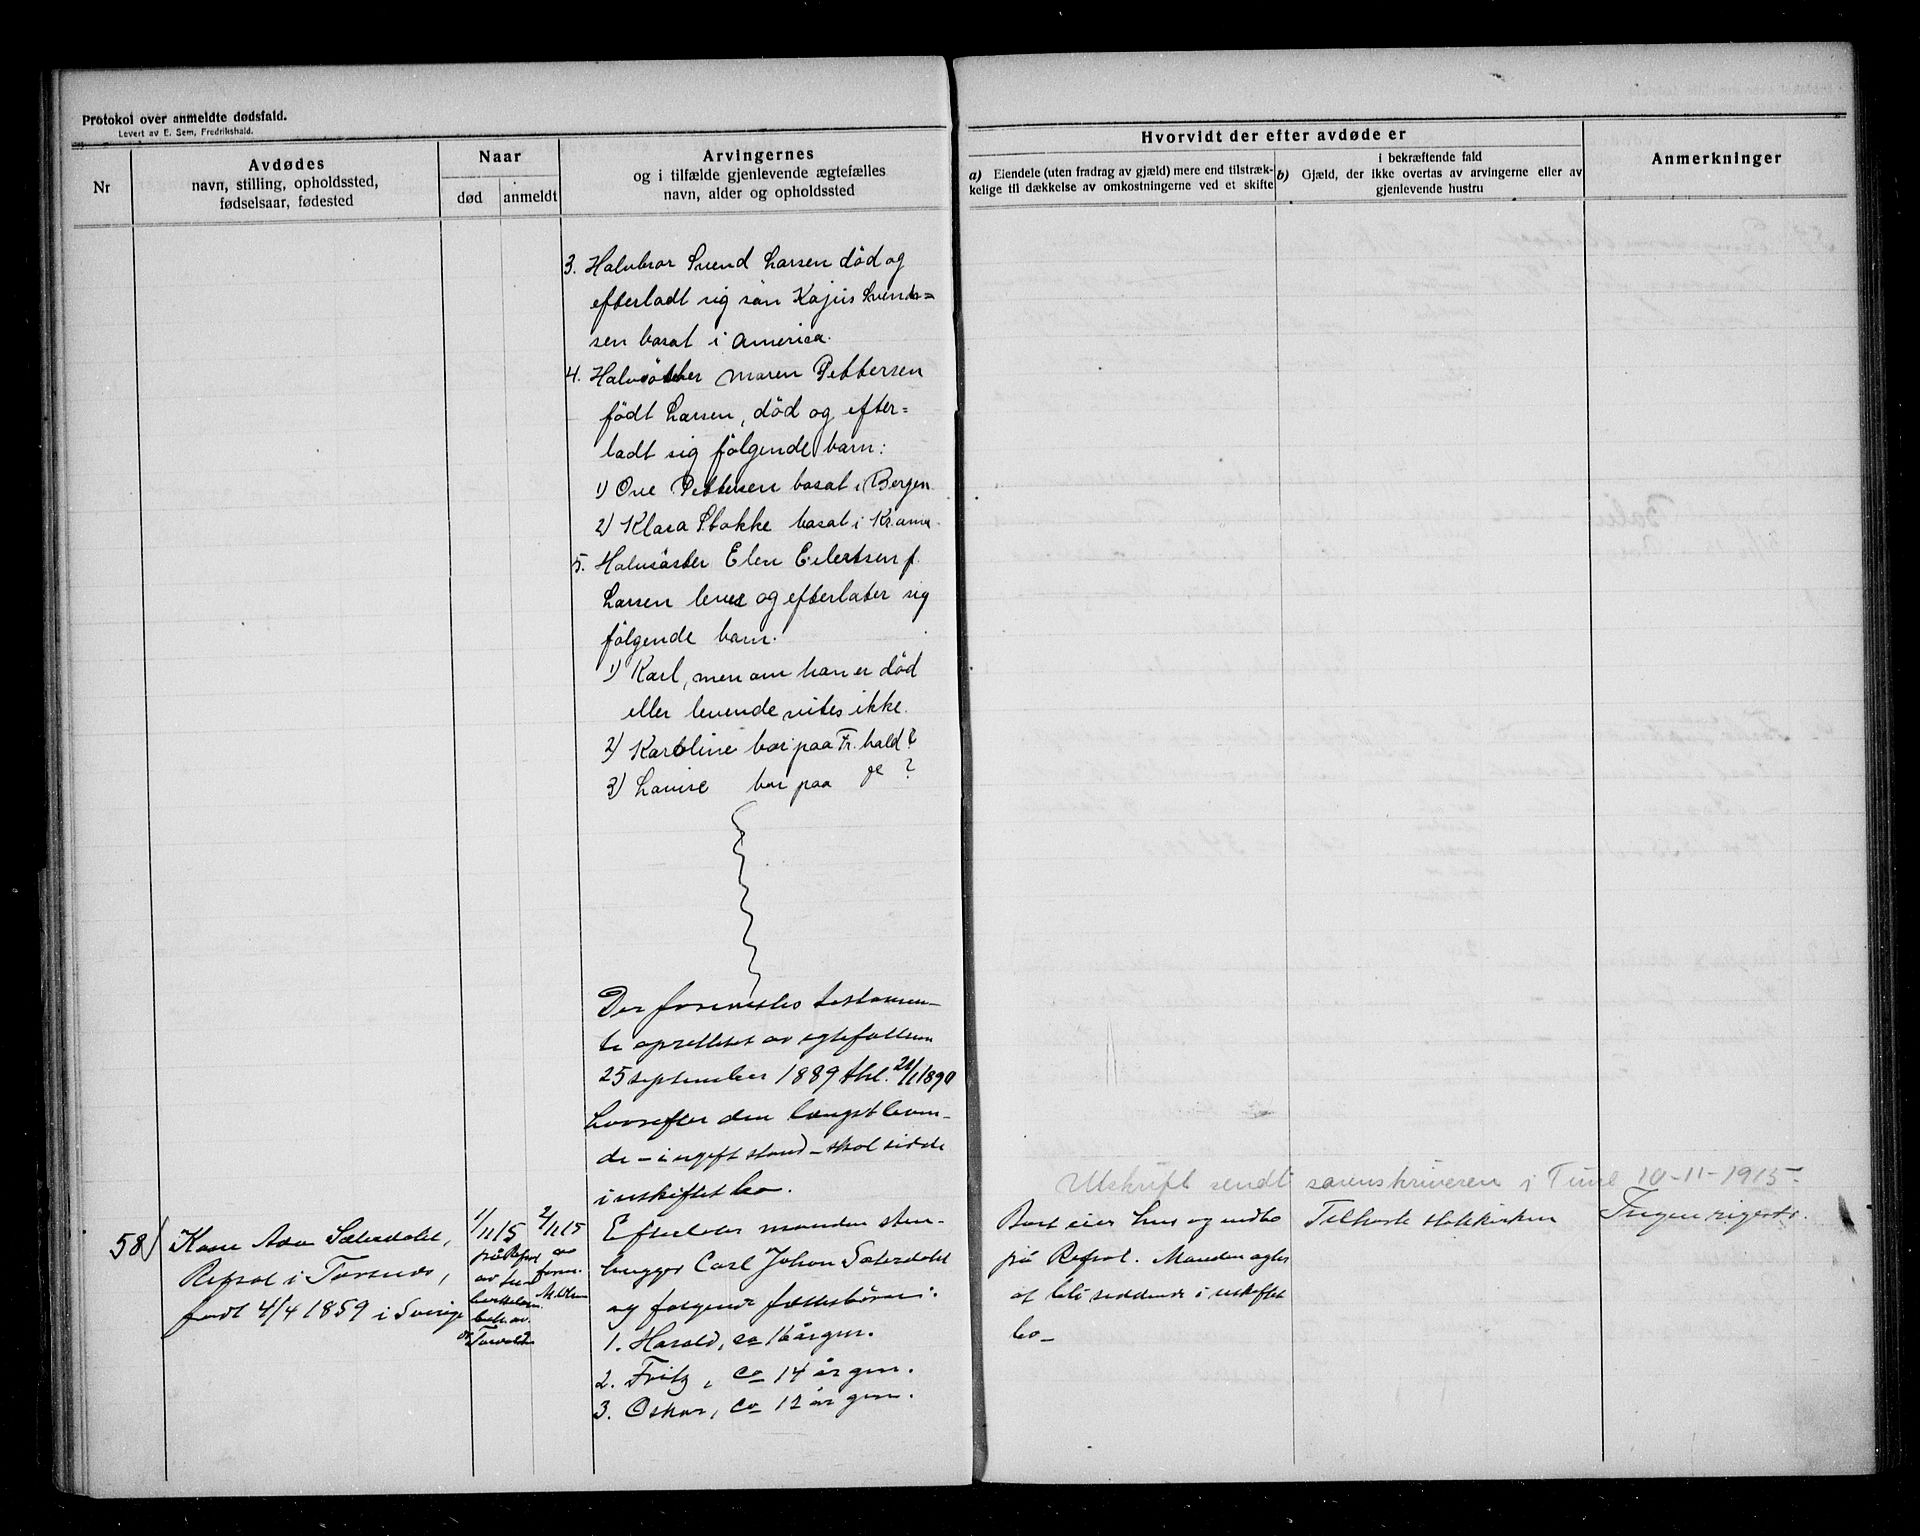 Protokol over anmeldte dødsfald.
Levert av E. Sem, Fredrikshald.
Nr
Avdødes
navn, stilling, opholdssted,
fødselsaar, fødested
Naar
død
anmeldt
Arvingernes
og i tilfælde gjenlevende ægtefælles
navn, alder og opholdssted
Hvorvidt der efter avdøde er
a) Eiendele (uten fradrag av gjæld) mere end tilstræk-
kelige til dækkelse av omkostningerne ved et skifte
i bekræftende fald
b) Gjæld, der ikke overtas av arvingerne eller av
gjenlevende hustru
Anmerkninger
3. Halvbror Svend Larsen död og
efterladt sig sön Kajus Svend-
sen bosat i America.
4. Halvsöster Maren Pettersen
födt Larsen, död og efter=
ladt sig fölgende barn:
1) Ove Pettersen bosat i Bergen
2) Klara Stokke bosat i Kr.ania.
5. Halvsöster Elen Eilertsen f.
Larsen lever og efterlater sig
fölgende barn.
1) Karl, men om han er död
eller levende vites ikke.
2) Karoline bor paa Fr.hald?
3) Lovise bor paa do ?
Der forevistes testamen-
te oprettet av egtefællerne
25 september 1889 thl. 1890
hvorefter den længstleven-
de - i ugift stand - skal sidde
i uskiftet bo.
Utskrift sendt sorenskriveren i Tune 10-11-1915
58)
Sætersdalet,
i Torsnes,
født 4/4 1859 i Sverige
1/11 15
2/11 15
Efterlater manden sten-
hugger Carl Johan Sætersdalet
og følgende fællesbørn:
1. Harald, ca 16 år gm.
2. Fritz, ca 14 år gm.
3. Oskar, ca 12 år gm.
Boet eier hus og indbo
på Manden agter
at bli siddende i uskiftet
bo -
Tilhørte statskirken
Ingen